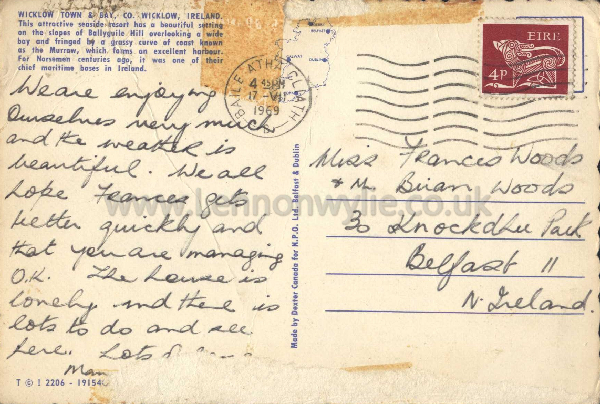 WICKLOW TOWN & BAY, CO. WICKLOW, IRELAND.
This attractive seaside resort has a beautiful setting
on the slopes of Ballyguile Hill overlooking a wide
bay and fringed by a grassy curve of coast known
as the Murrow, which forms an excellent harbour.
For Norsemen centuries ago, it was one of their
chief maritime bases in Ireland.
We are enjoying
Ourselves very much
and the weather is
beautiful. We all
hope Frances gets
better quickly and
that you are managing
O.K. The house is
lovely and there is
lots to do and see
here. Lots
T © I 2206 - 19154
Made by Dexter Canada for K.P.O. Ltd. Belfast & Dublin
BAILE ATHA CLIATH
4
17 VII
1969
EIRE
4P
Miss Frances Woods
& Mr Brian Woods
30 Knockdhu Park
Belfast 11
N. Ireland.
www.lennonwylie.co.uk